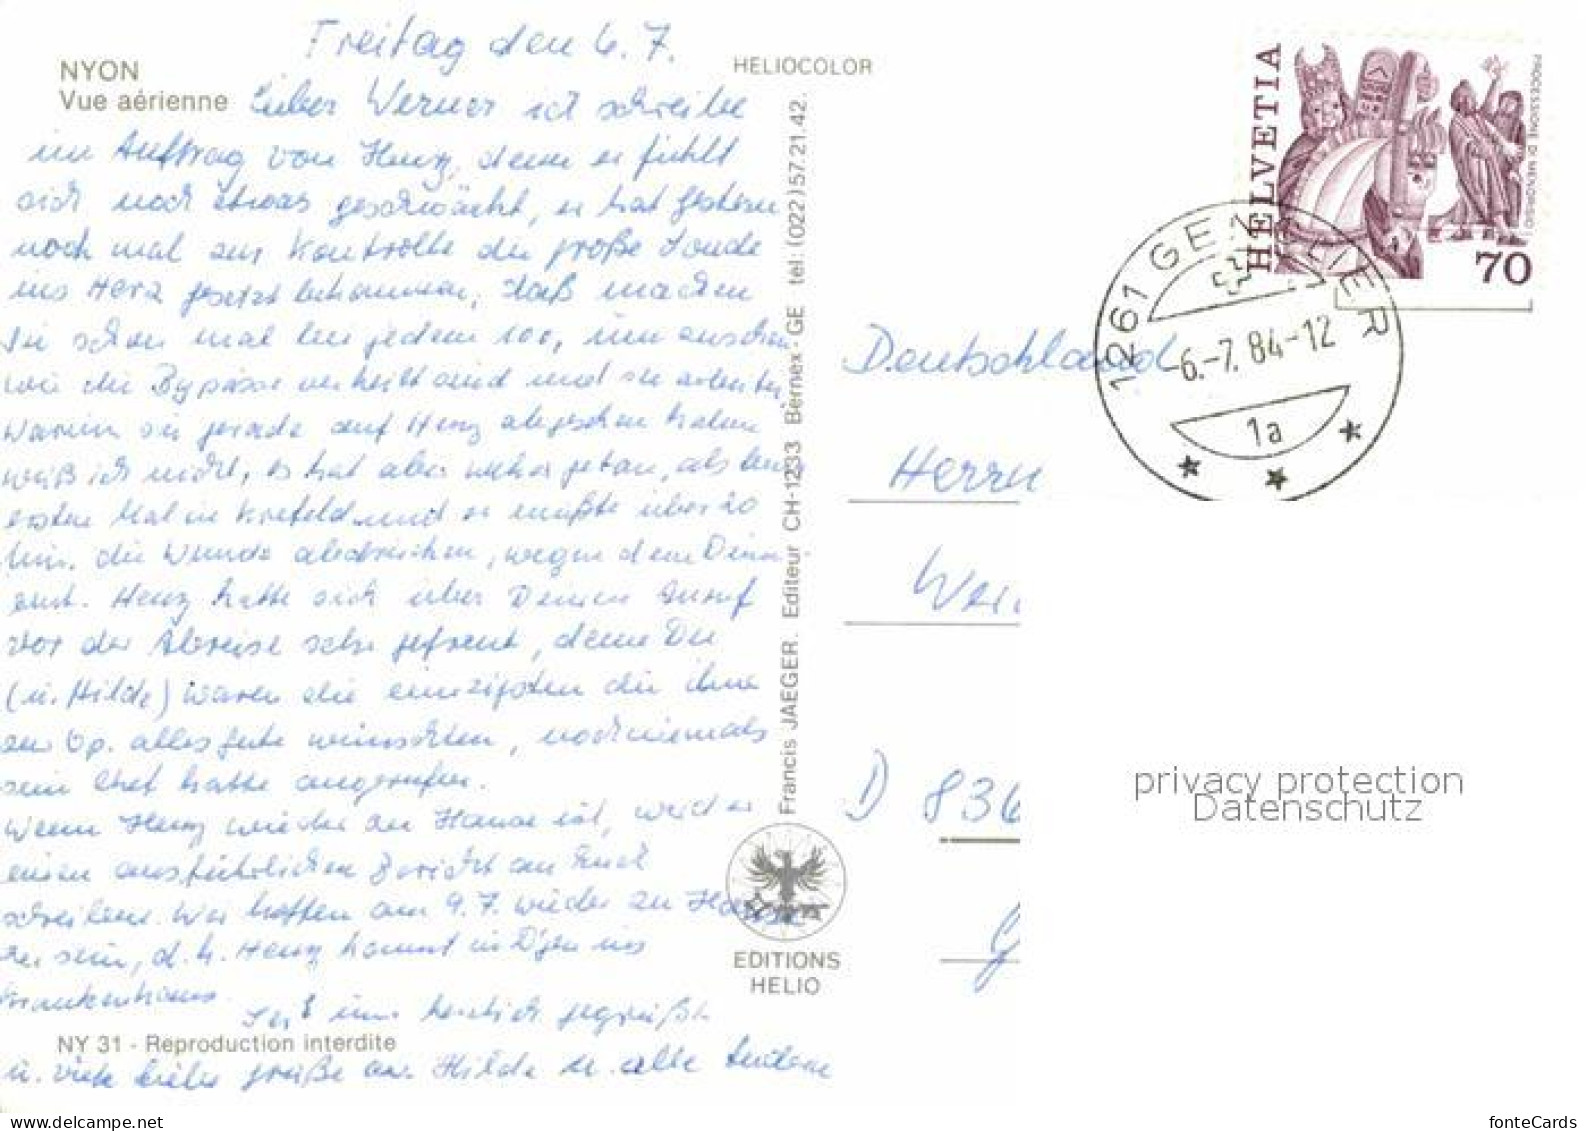 Freitag den 6.7.
NYON
Vue aérienne
Lieber Werner ich schreibe
im Auftrag von Heinz, denn er fühlt
sich noch etwas geschwächt, er hat gestern
noch mal zur Kontrolle die große Sonde
ins Herz gesetzt bekommen, daß machen
Sie schon mal bei jedem 100, um
wie die Bypässe verheilt sind und sie arbeiten,
Warum sie gerade auf Heinz abgesehen haben
weiß ich nicht, es hat aber weher getan, als beim
ersten Mal in Krefeld und er mußte über 20
Min. die Wunde abdrücken, wegen dem
Heinz hatte sich über Deinen Anruf
vor der Abreise sehr gefreut, denn Du
(u. Hilde) waren die einzigsten die ihm
zur Op. alles gute wünschten, noch niemals
sein Chef hatte angerufen.
Wenn Heinz wieder zu Hause ist, wird er
einen ausführlichen Bericht an Euch
schreiben. Wir hoffen am 9.7. wieder zu Hause
zu sein, d.h. Heinz kommt in D'gen ins
Krankenhaus.
Seid nun herzlich gegrüßt
NY 31 - Reproduction interdite
u. viele liebe grüße an Hilde u. alle
HELIOCOLOR
Francis JAEGER. Editeur CH-1233 Bernex-GE tel: (022) 57.21.42.
EDITIONS
HELIO
HELVETIA
PROCESSIONE DI MENDRISIO
70
1261 GENOLIER
6.-7.84-12
1a
Deutschland
Herrn
Wer
D 836
G
privacy protection
Datenschutz
fonteCards